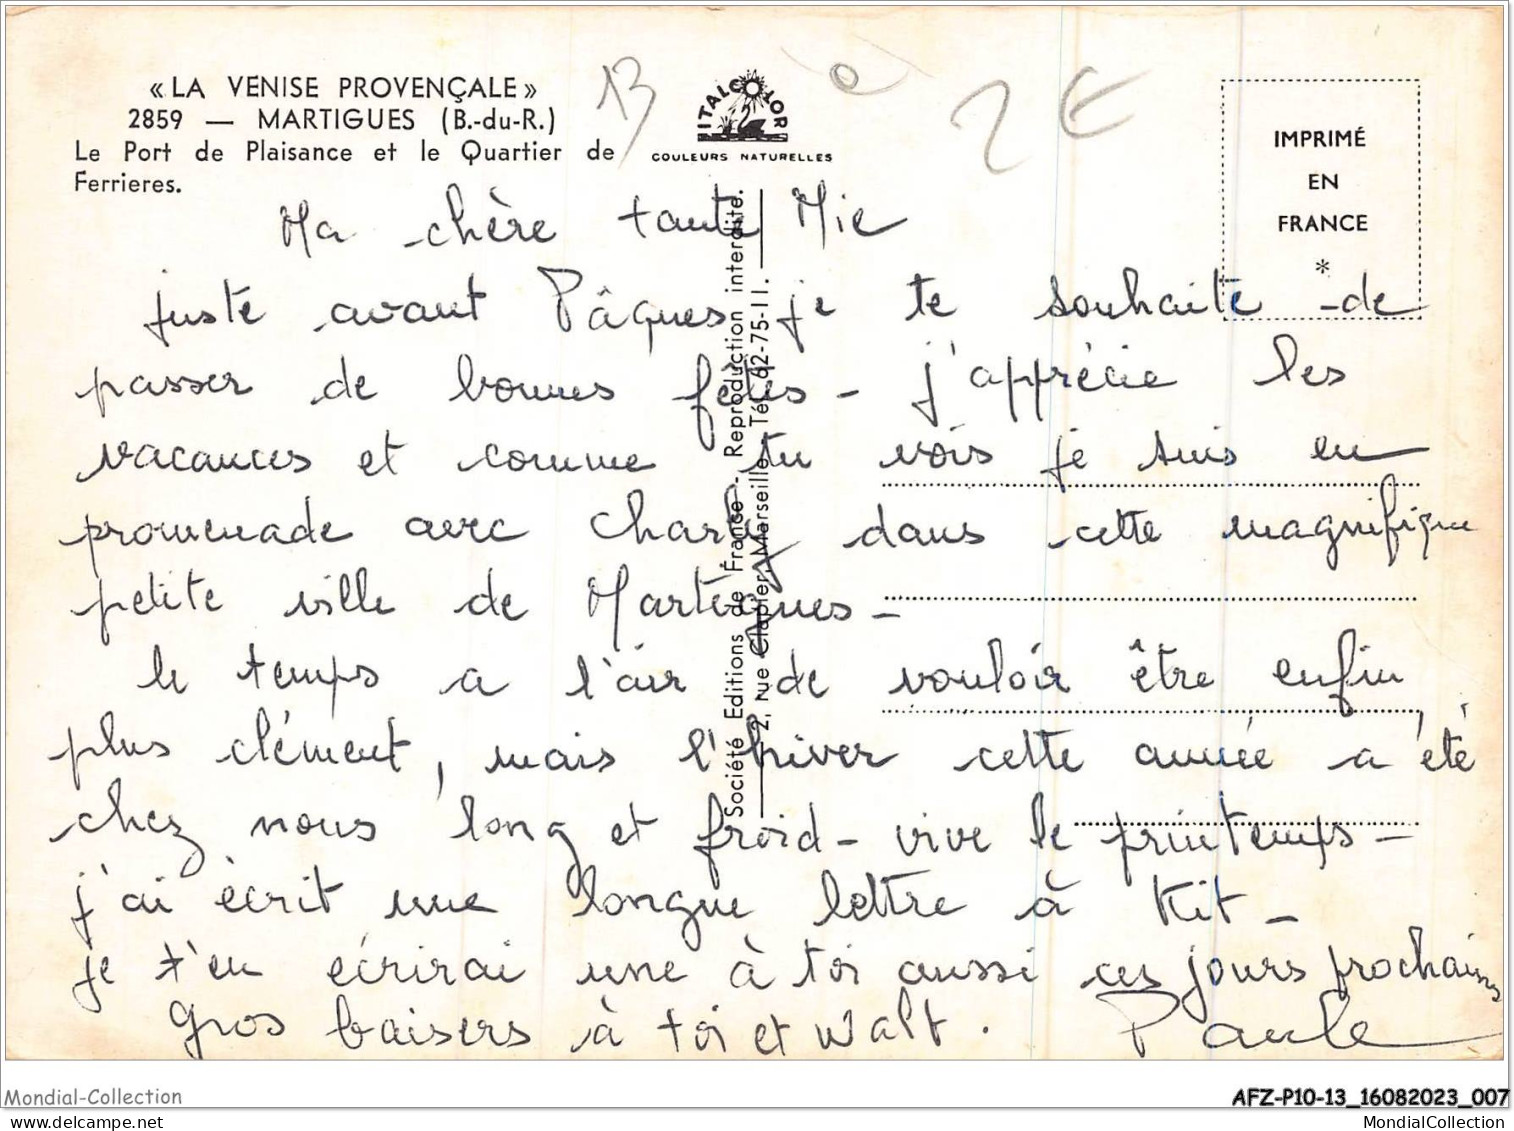 « LA VENISE PROVENÇALE »
2859 — MARTIGUES (B.-du-R.)
Le Port de Plaisance et le Quartier de
Ferrieres.
13
ITALCOLOR
COULEURS NATURELLES
2 €
IMPRIMÉ
EN
FRANCE
*
Société Editions de France - Reproduction interdite.
2, rue Clapier, Marseille Tél. 62-75-11.
Ma chère tante Mie
juste avant Pâques je te souhaite de
passer de bonnes fêtes - j'apprécie les
vacances et comme tu vois je suis en
promenade avec Charly dans cette magnifique
petite ville de Martigues -
le temps a l'air de vouloir être enfin
plus clément, mais l'hiver cette année a été
chez nous long et froid - vive le printemps -
j'ai écrit une longue lettre à Kit -
je t'en écrirai une à toi aussi ces jours prochains
Gros baisers à toi et Walt. Paule
Mondial-Collection
AFZ-P10-13_16082023_007
delcampe.net
MondialCollection